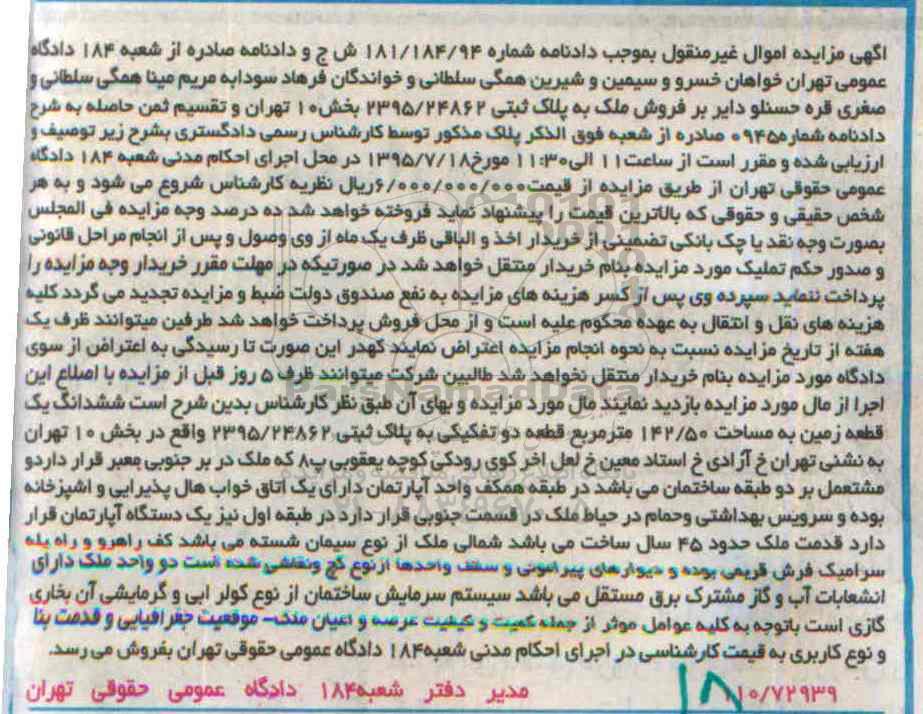 اگهی مزایده اموال غیرمنقول بموجب دادنامه شماره ۱۸۱/۱۸۴/۹۴ ش ج و دادنامه صادره از شعبه ۱۸۴ دادگاه
عمومی تهران خواهان خسرو و سیمین و شیرین همگی سلطانی و خواندگان فرهاد سودابه مریم مینا همگی سلطانی و
صغری قره حسنلو دایر بر فروش ملک به پلاک ثبتی ۲۳۹۵/۲۴۸۶۲ بخش۱۰ تهران و تقسیم ثمن حاصله به شرح
دادنامه شماره۰۹۴۵۵ صادره از شعبه فوق الذکر پلاک مذکور توسط کارشناس رسمی دادگستری بشرح زیر توصیف و
ارزیابی شده و مقرر است از ساعت۱۱ الی۱۱:۳۰ مورخ۱۳۹۵/۷/۱۸ در محل اجرای احکام مدنی شعبه ۱۸۴ دادگاه
عمومی حقوقی تهران از طریق مزایده از قیمت۶/۰۰۰/۰۰۰/۰۰۰ریال نظریه کارشناس شروع می شود و به هر
شخص حقیقی و حقوقی که بالاترین قیمت را پیشنهاد نماید فروخته خواهد شد ده درصد وجه مزایده فی المجلس
بصورت وجه نقد یا چک بانکی تضمینی از خریدار اخذ و الباقی ظرف یک ماه از وی وصول و پس از انجام مراحل قانونی
و صدور حکم تملیک مورد مزایده بنام خریدار منتقل خواهد شد در صورتیکه در مهلت مقرر خریدار وجه مزایده را
پرداخت ننماید سپرده وی پس از کسر هزینه های مزایده به نفع صندوق دولت ضبط و مزایده تجدید می گردد کلیه
هزینه های نقل و انتقال به عهده محکوم علیه است و از محل فروش پرداخت خواهد شد طرفین میتوانند ظرف یک
هفته از تاریخ مزایده نسبت به نحوه انجام مزایده اعتراض نمایند کهدر این صورت تا رسیدگی به اعتراض از سوی
دادگاه مورد مزایده بنام خریدار منتقل نخواهد شد طالبین شرکت میتوانند ظرف ۵ روز قبل از مزایده با اصلاع این
اجرا از مال مورد مزایده بازدید نمایند مال مورد مزایده و بهای آن طبق نظر کارشناس بدین شرح است ششدانگ یک
قطعه زمین به مساحت ۱۴۲/۵۰ مترمربع قطعه دو تفکیکی به پلاک ثبتی ۲۳۹۵/۲۴۸۶۲ واقع در بخش ۱۰ تهران
به نشنی تهران خ آزادی خ استاد معین خ لعل اخر کوی رودکی کوچه یعقوبی پ۸ که ملک در بر جنوبی معبر قرار داردو
مشتعمل بر دو طبقه ساختمان می باشد در طبقه همکف واحد آپارتمان دارای یک اتاق خواب هال پذیرایی و اشپزخانه
بوده و سرویس بهداشتی وحمام در حیاط ملک در قسمت جنوبی قرار دارد در طبقه اول نیز یک دستگاه آپارتمان قرار
دارد قدمت ملک حدود ۴۵ سال ساخت می باشد شمالی ملک از نوع سیمان شسته می باشد کف راهرو و راه پله
سرامیک فرش قریمی بوده و دیوارهای پیرامونی و سقف واحدها ازنوع گچ ونقاشی شده است دو واحد ملک دارای
انشعابات آب و گاز مشترک برق مستقل می باشد سیستم سرمایش ساختمان از نوع کولر ابی و گرمایشی آن بخاری
گازی است باتوجه به کلیه عوامل موثر از جمله کمیت و کیفیت عرصه و اعیان ملک- موقعیت جغرافیایی و قدمت بنا
و نوع کاربری به قیمت کارشناسی در اجرای احکام مدنی شعبه۱۸۴ دادگاه عمومی حقوقی تهران بفروش می رسد.
۱۰/۷۲۹۳۹ ۱۸ مدیر دفتر شعبه۱۸۴ دادگاه عمومی حقوقی تهران
ParsNamadData